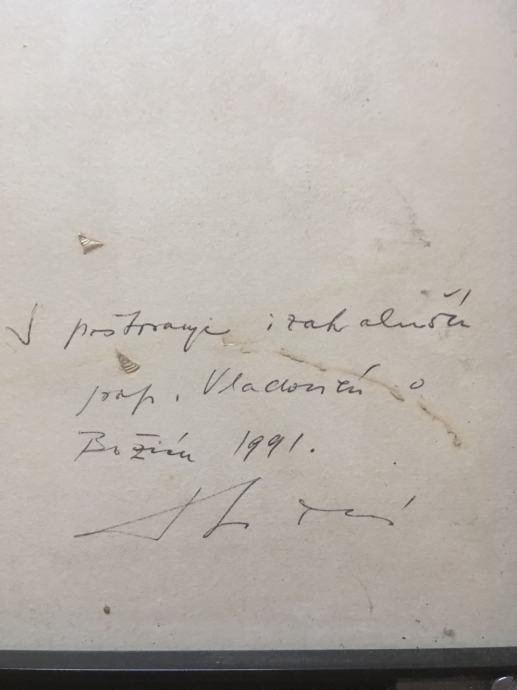 S poštovanje i zahvalnošću
prof. Vladoviću o
Božiću 1991.